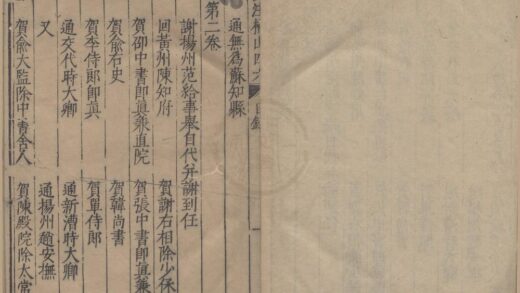 山四六
目錄
通無為蘇知縣
第二卷
謝揚州范給事舉自代并謝到任
回黃州陳知府
賀謝右相除少保
賀邵中書即真兼直院
賀張中書即真兼
賀俞右史
賀韓尚書
賀李侍郎即真
賀單侍郎
通交代時大卿
通新漕時大卿
又
通揚州趙安撫
賀俞大監除中書舍人
賀陳殿院除太常